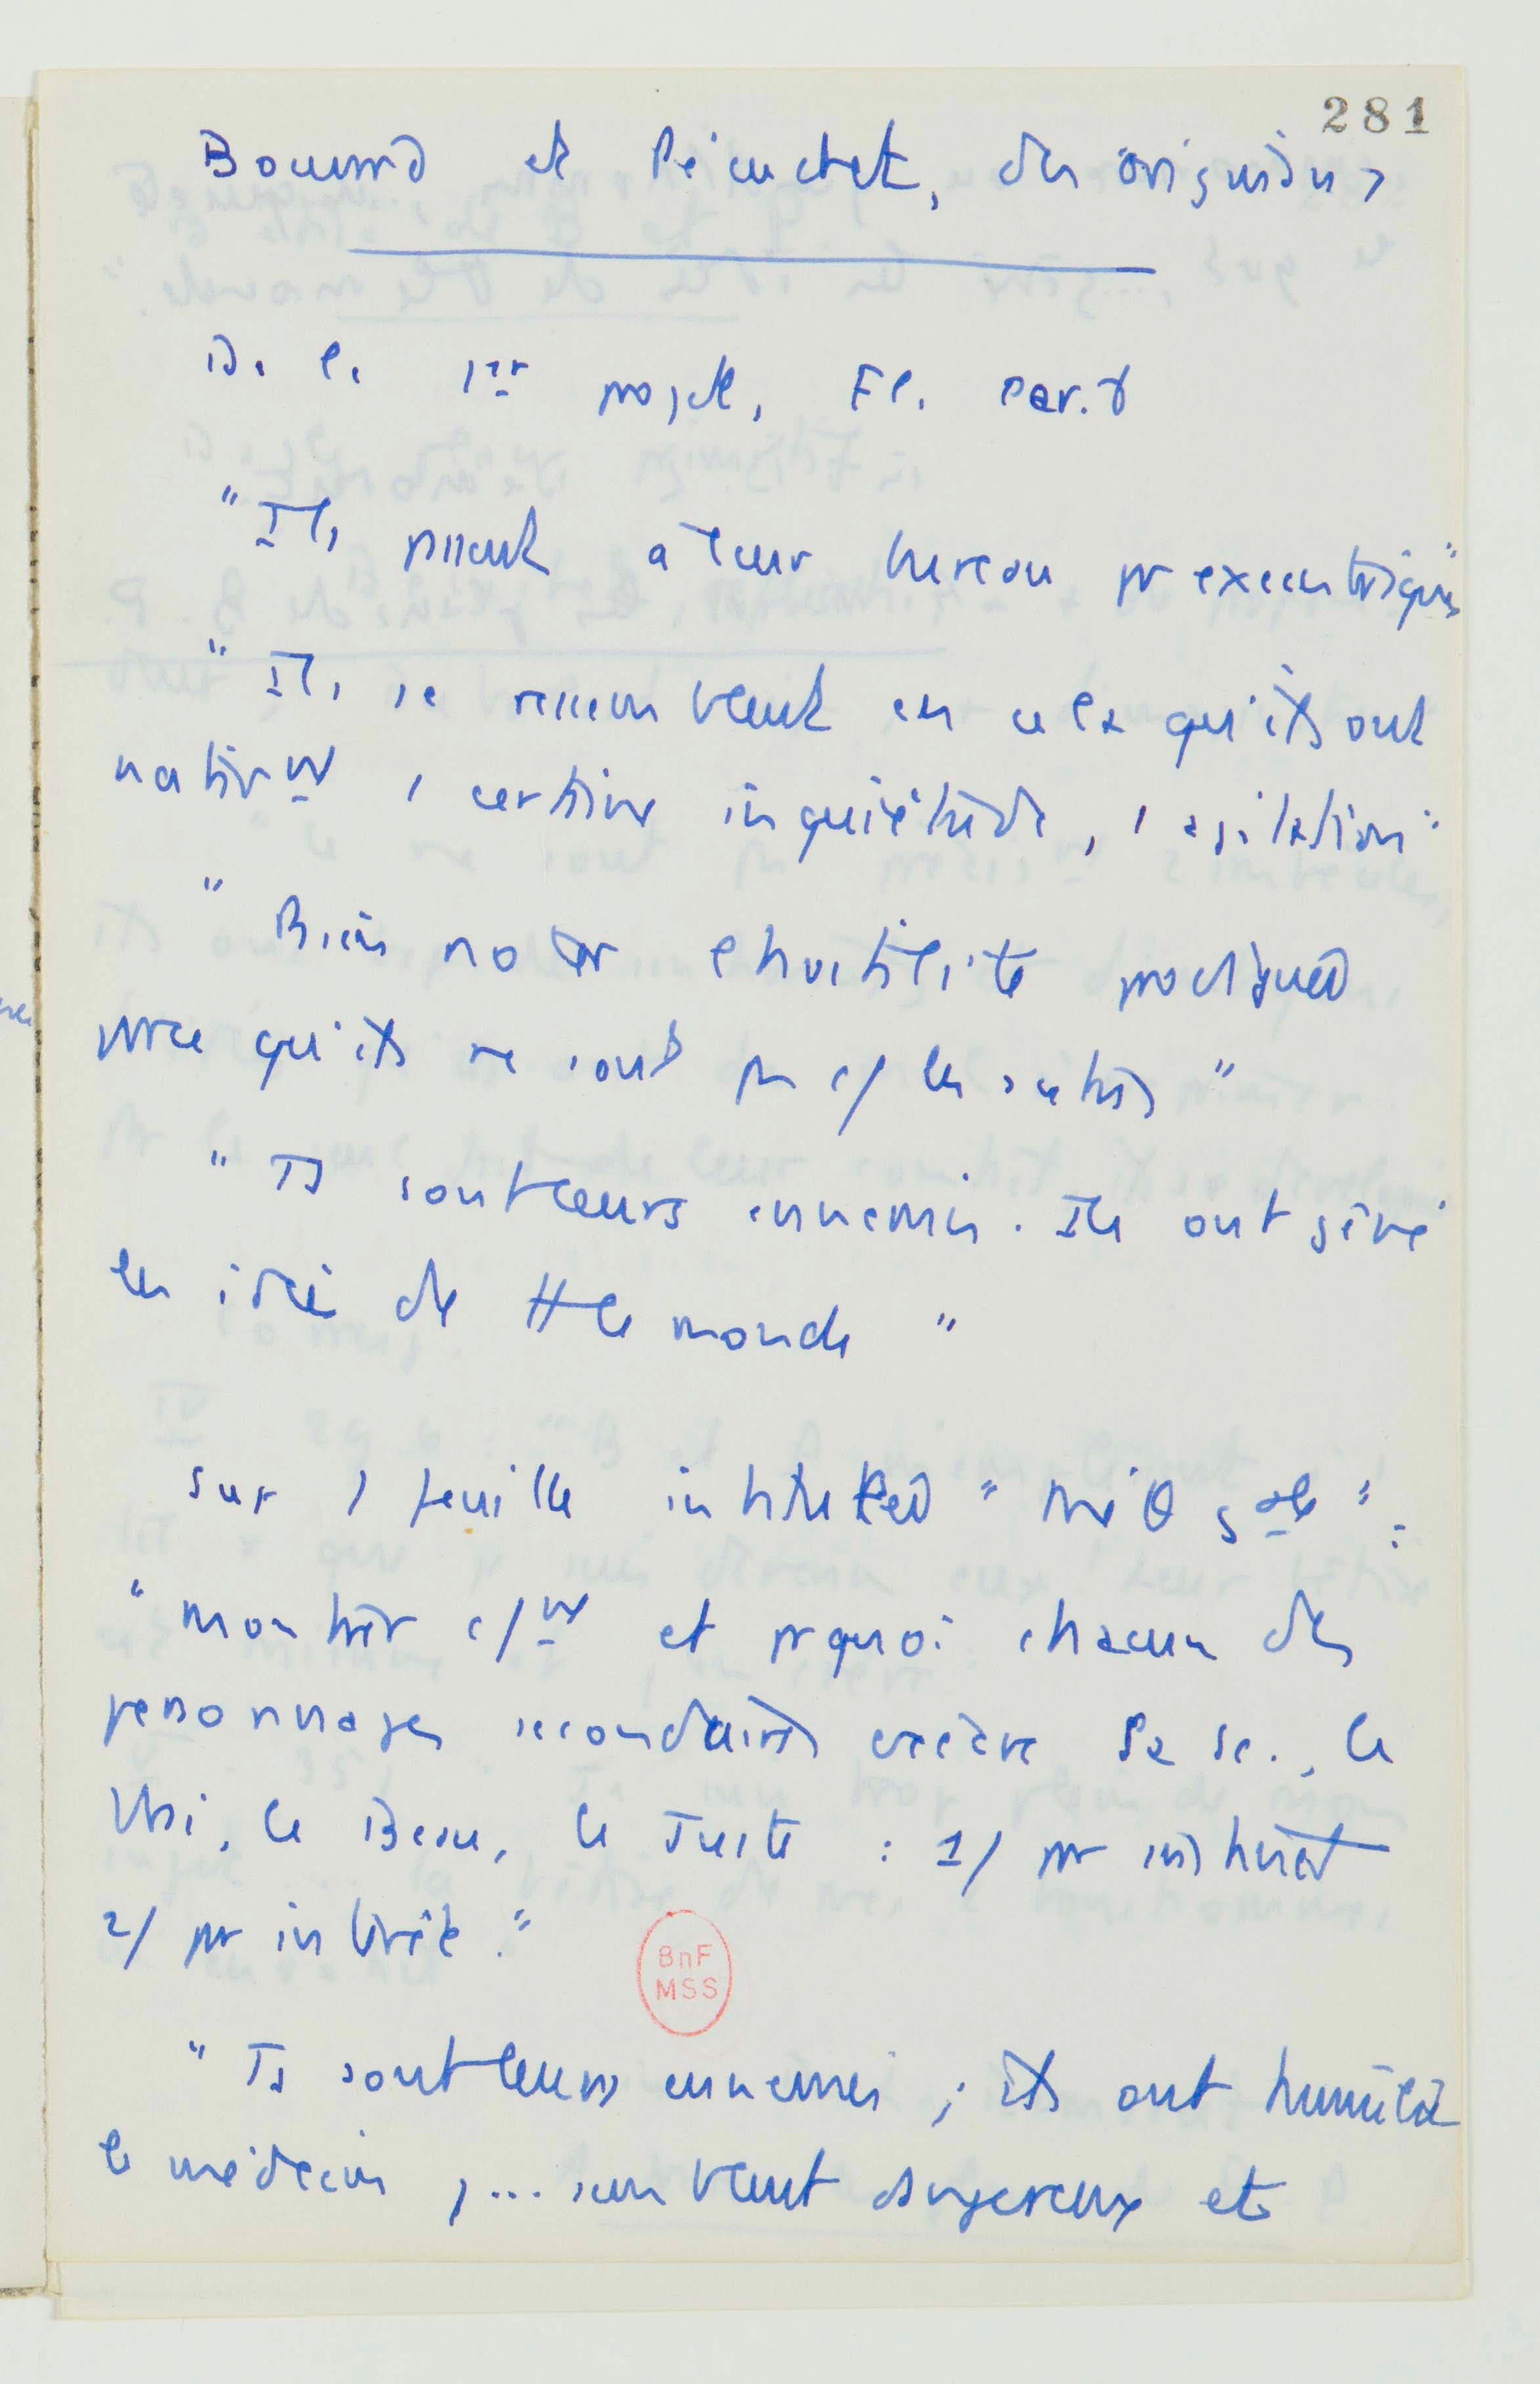 281
Bouvard et Pécuchet, des originaux
D. l. 1er projet, Fl.
"Ils passent à leur bureau pr excentriques"
"Ils se ressemblent en cela qu'ils ont
nativt 1 certaine inquiétude, 1 agitation"
"Bien noter l'hostilité
parce qu'ils ne sont pas c/ les autres"
"Ts sont leurs ennemis. Ils ont gêné
les idées de tt le monde"
Sur 1 feuille intitulée " gale" :
"montrer c/t et pr quoi chacun des
personnages secondaires exècre la Sc., le
Vrai, le Beau, le Juste : 1/ par instinct
2/ par intérêt."
BnF
MSS
"Ts sont leurs ennemis ; ils ont humilié
le médecin, ... semblent dangereux et